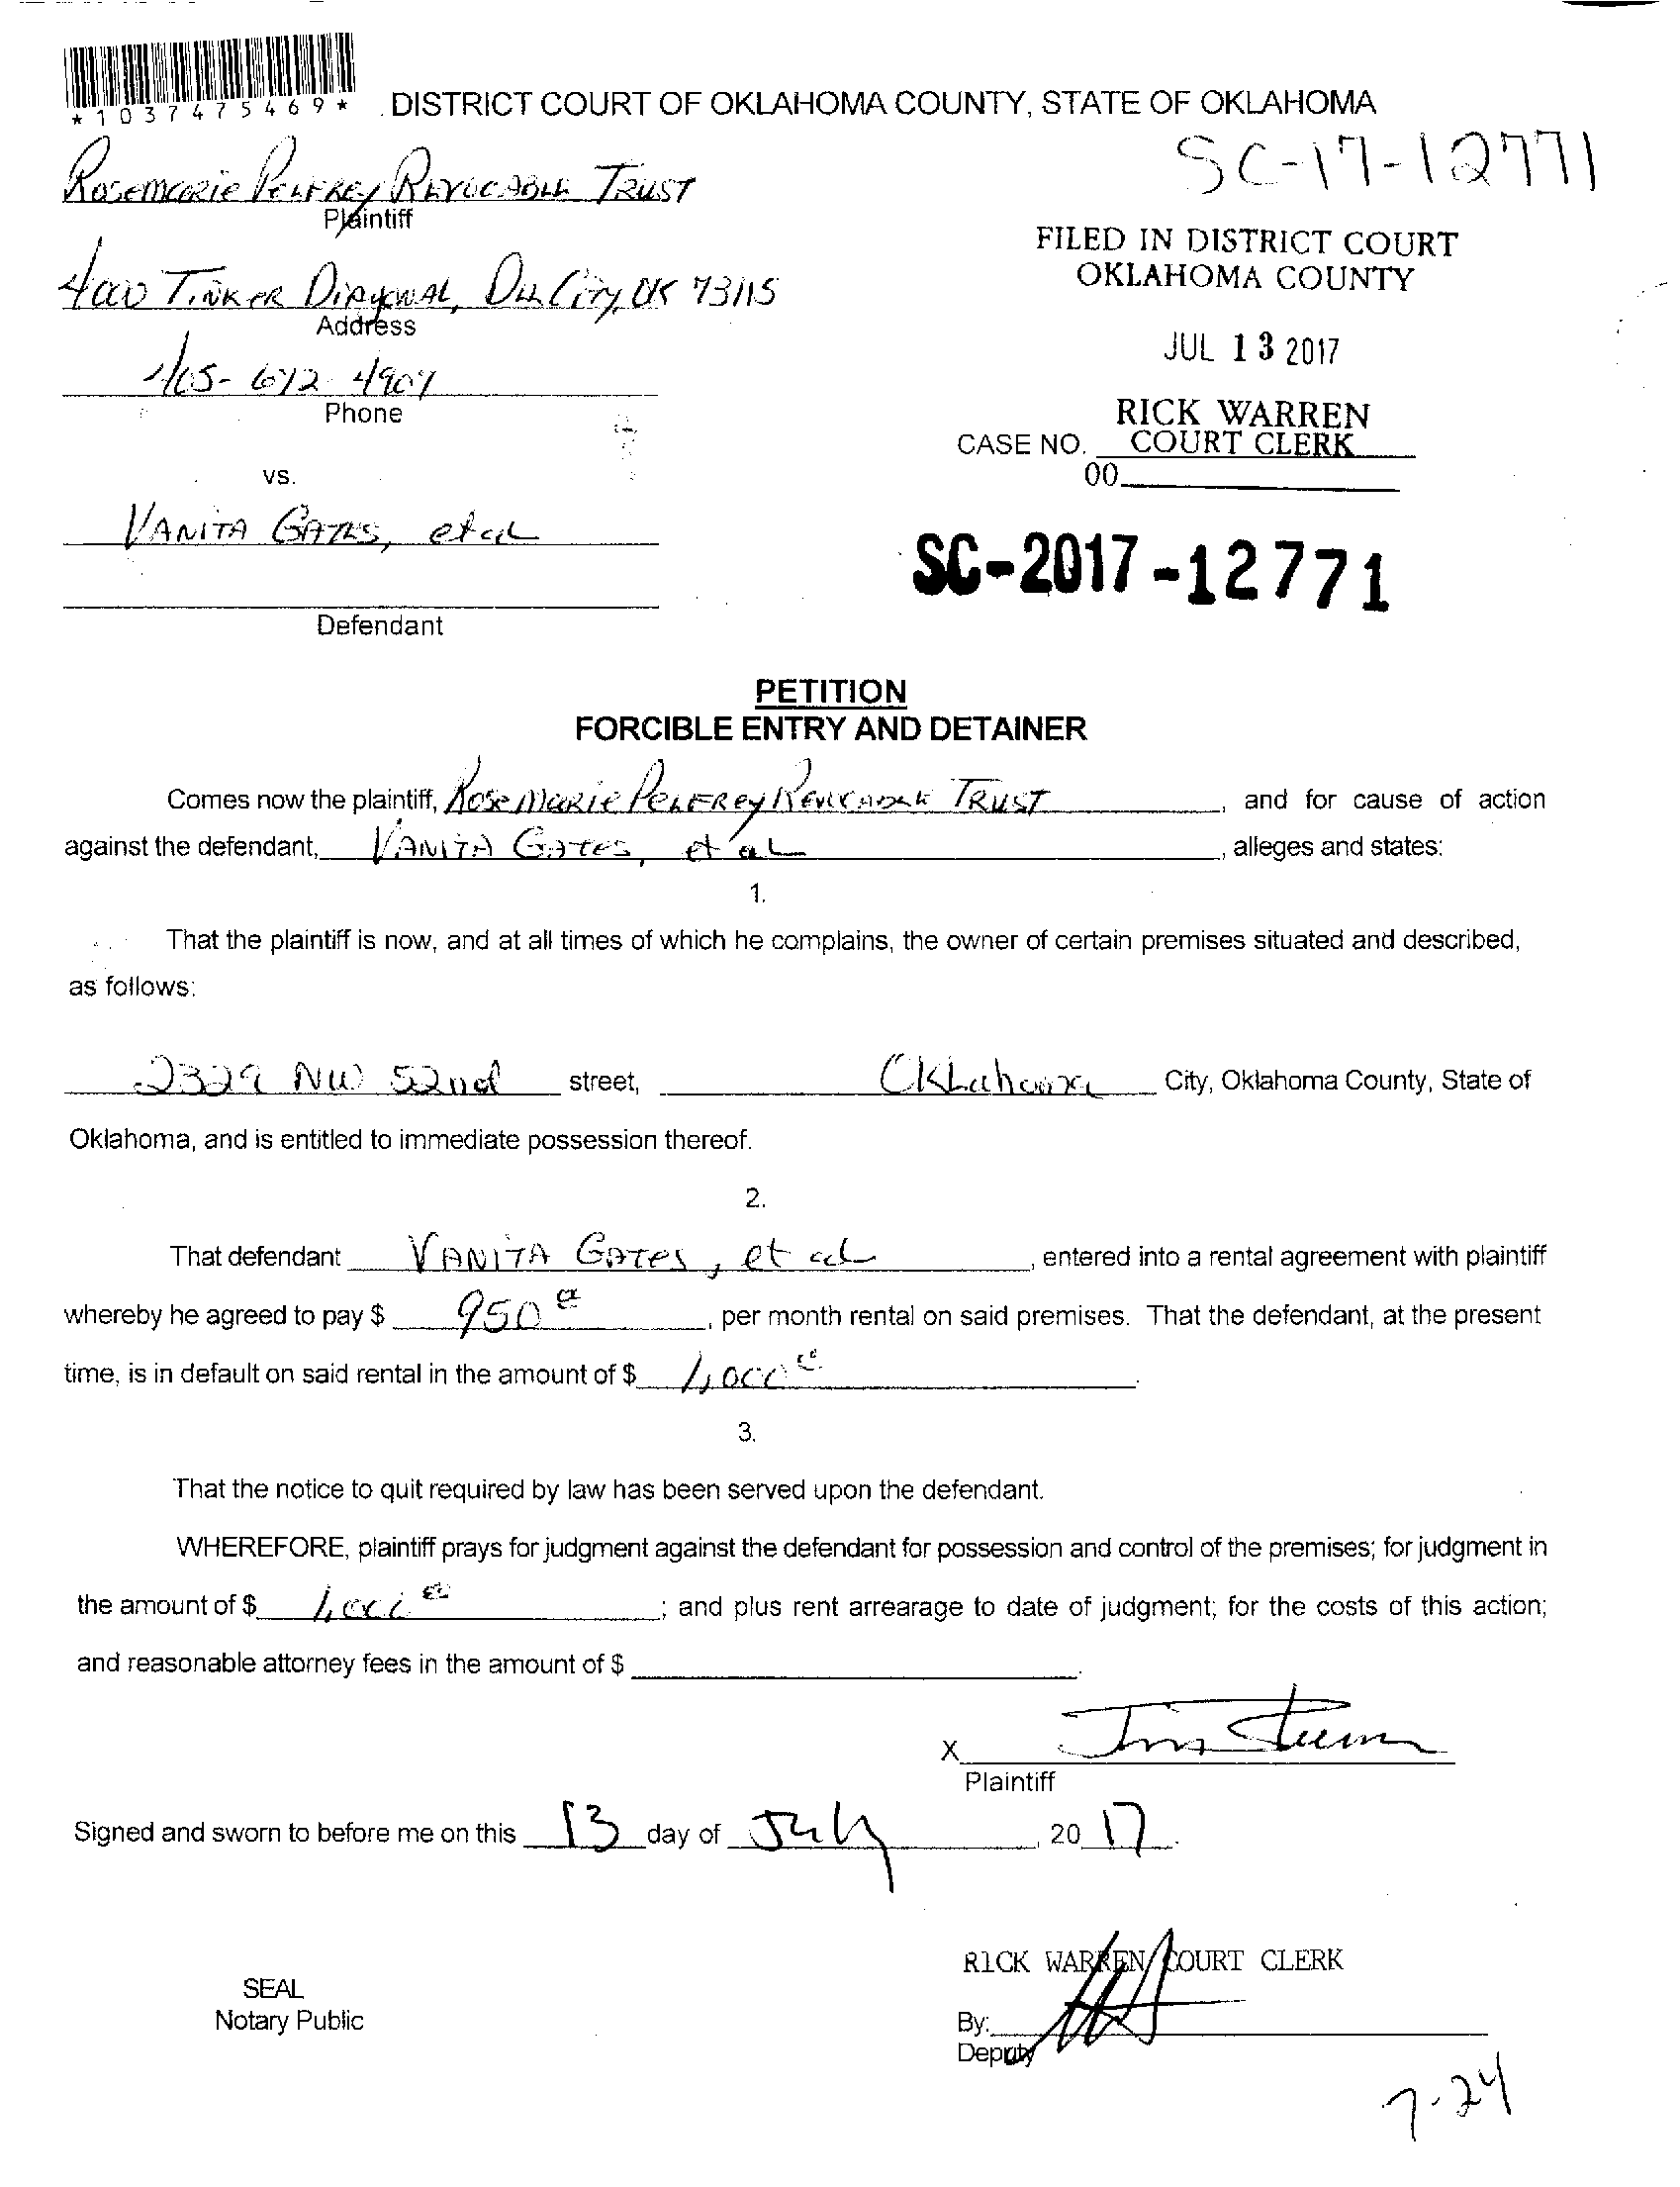 *1037475469*
DISTRICT COURT OF OKLAHOMA COUNTY, STATE OF OKLAHOMA
SC-17-12771
Rosemarie Pelfrey Revocable Trust
Plaintiff
FILED IN DISTRICT COURT
OKLAHOMA COUNTY
4000 Tinker Diagonal, Del City, OK 73115
Address
JUL 13 2017
405-672-4907
Phone
RICK WARREN
CASE NO. COURT CLERK
00
vs.
VANITA GATES, et al
SC-2017-12771
Defendant
PETITION
FORCIBLE ENTRY AND DETAINER
Comes now the plaintiff, Rosemarie Pelfrey Revocable Trust, and for cause of action
against the defendant, VANITA Gates, et al, alleges and states:
1.
That the plaintiff is now, and at all times of which he complains, the owner of certain premises situated and described,
as follows:
2329 NW 52nd street, Oklahoma City, Oklahoma County, State of
Oklahoma, and is entitled to immediate possession thereof.
2.
That defendant VANITA Gates, et al, entered into a rental agreement with plaintiff
whereby he agreed to pay $ 950 , per month rental on said premises. That the defendant, at the present
time, is in default on said rental in the amount of $ 1,000 .
3.
That the notice to quit required by law has been served upon the defendant.
WHEREFORE, plaintiff prays for judgment against the defendant for possession and control of the premises; for judgment in
the amount of $ 1,000 ; and plus rent arrearage to date of judgment; for the costs of this action;
and reasonable attorney fees in the amount of $ .
X
Plaintiff
Signed and sworn to before me on this 13 day of July, 20 17.
RICK WARREN COURT CLERK
SEAL
Notary Public
By:
Deputy
7-24